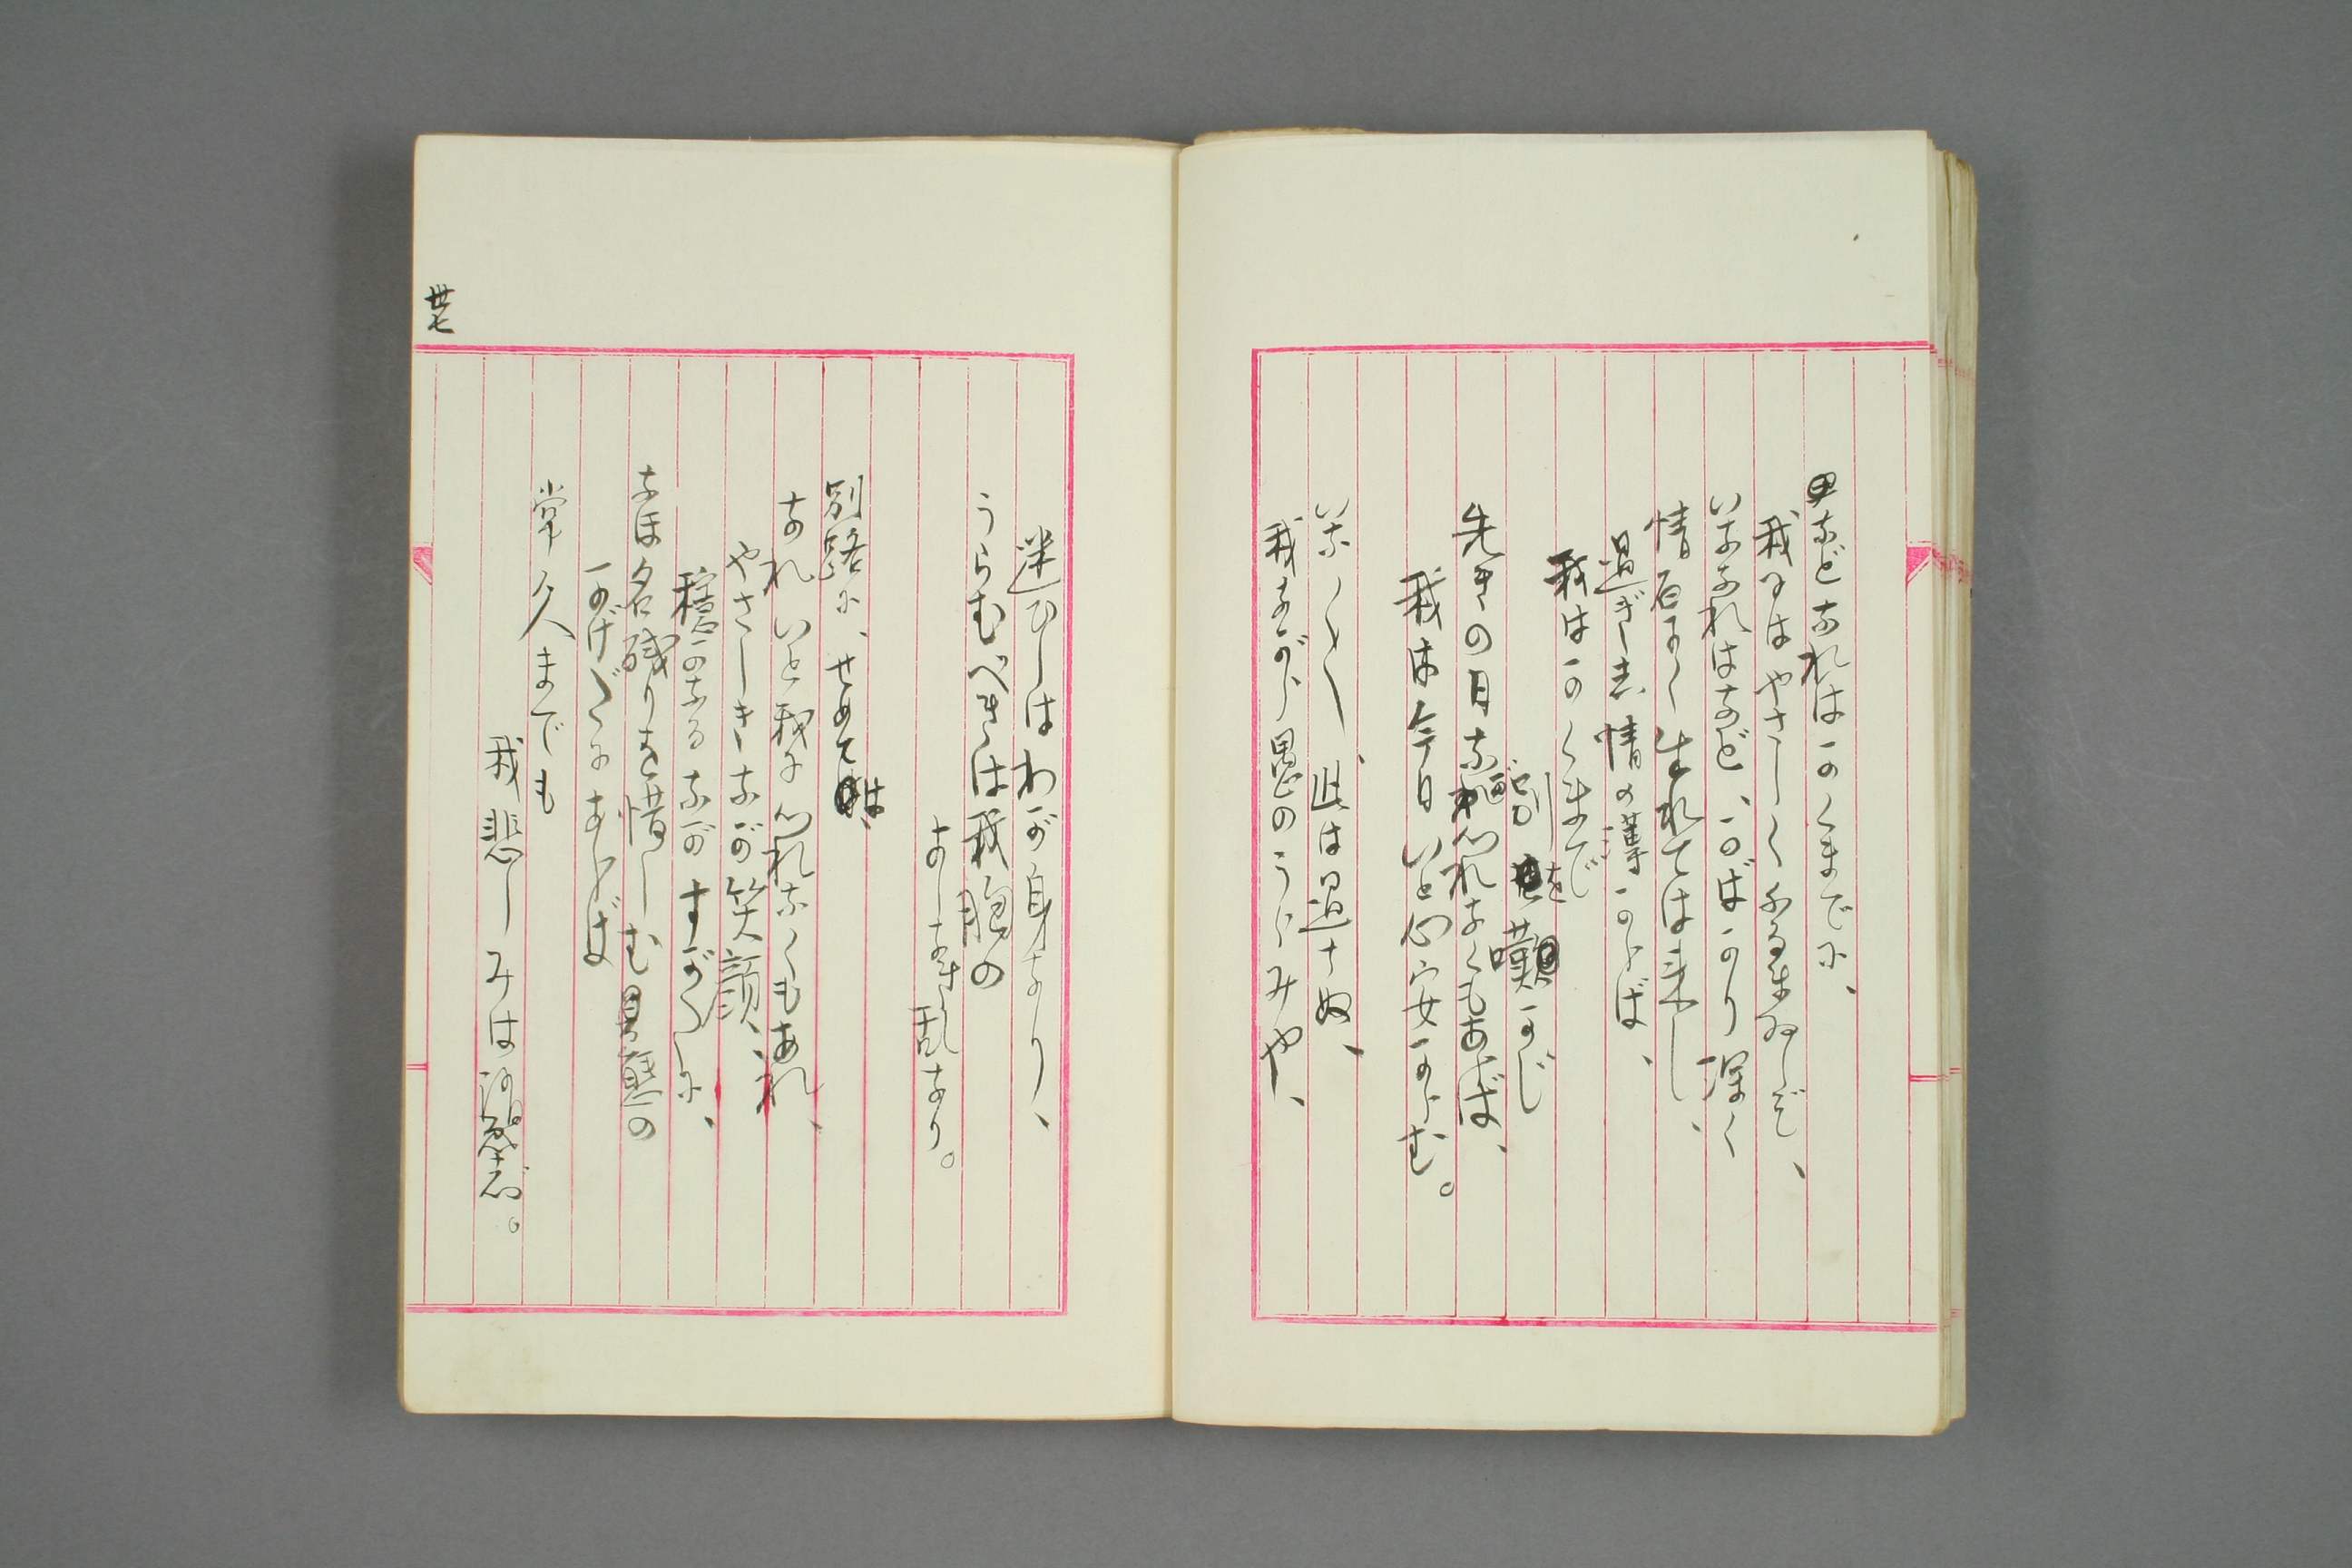 などなれはかくまでに、
我にはやさしくふるまひしぞ、
いななれはなど、かばかり深く
情ある人と生れては来し、
過ぎし君情の薄からば、
我はかくまで
別を嘆かじ
先きの日なれ心れなくもあらば、
我は今日いと心安からむ。
いな〳〵、此は過ちぬ、
我ながら愚のうらみや、
迷ひしはわが身なり、
うらむべきは我胸の
あしき乱なり。
別路に、せめては
なれいと我に心れなくもあれ、
やさしきなが笑顔、
穏かなるながすがたに、
なほ名残りを惜しむ
かげだになあらば
常久までも
我悲しみは
丗七